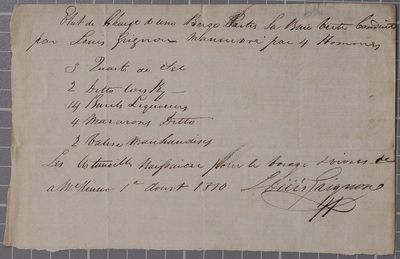 Etat de Charge d'une Berge Partis La Baie Verte Conduit
par Louis Grignon Manuvré par 4 Hommes
3 Quarts de Sel
2 Ditto Wisky
14 Barils Liqueurs
4 Ditto
2 Valise Marchandises
Les Ustancilles pour le voiage vivres &c
a 1er Aoust 1810 Louis Grignon